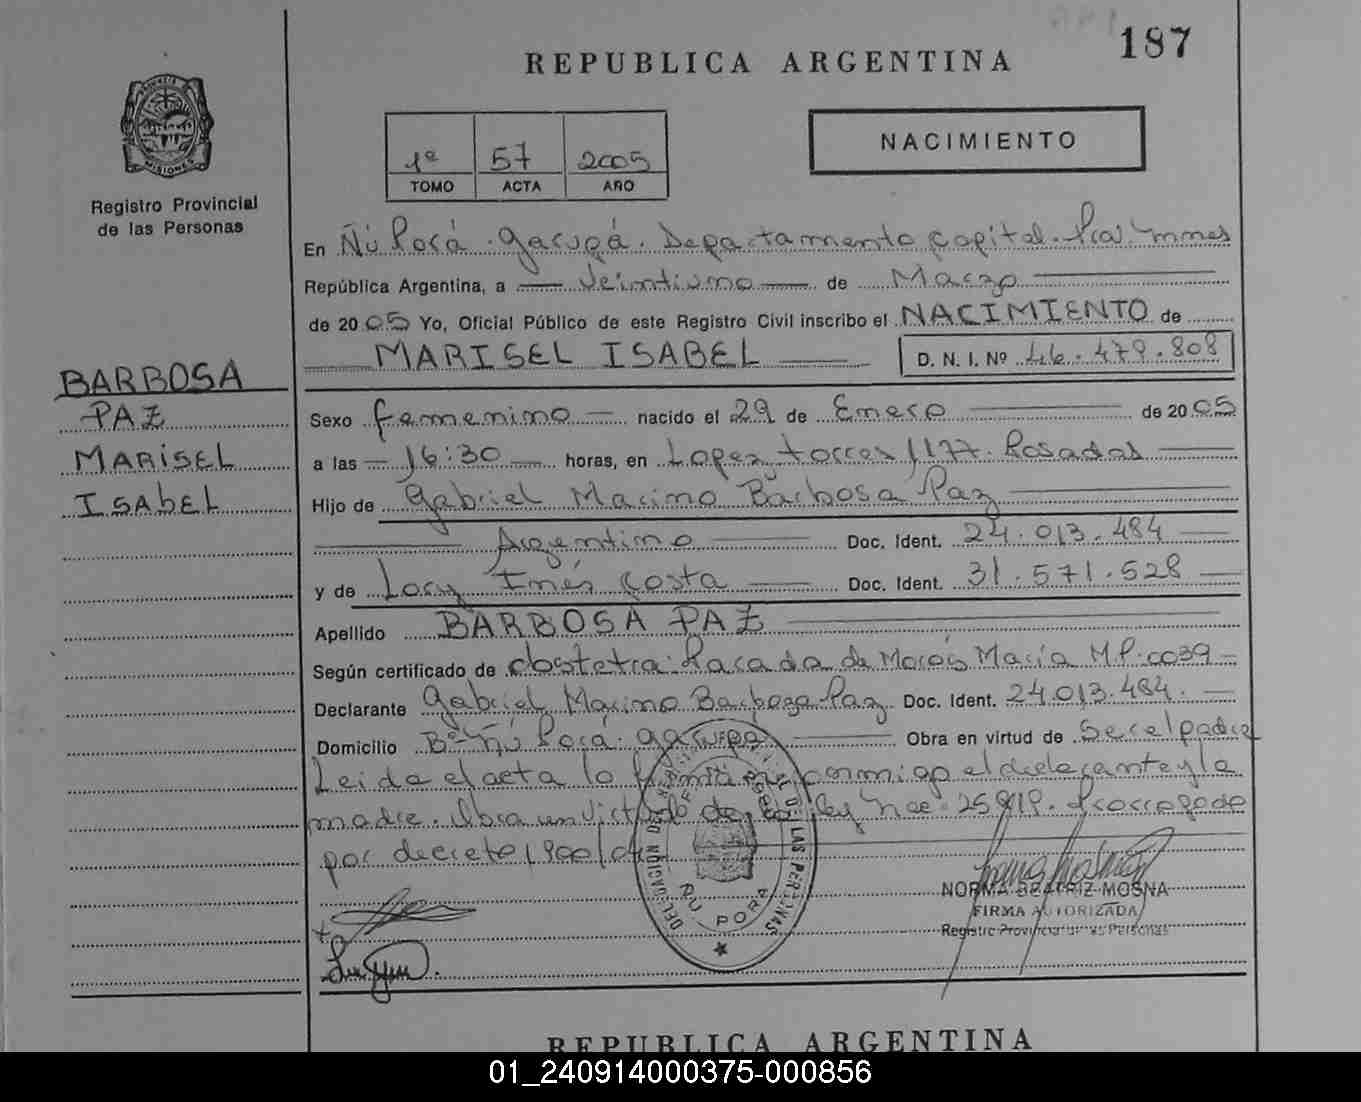 187
REPUBLICA ARGENTINA
PROVINCIA DE MISIONES
Registro Provincial
de las Personas
1º 57 2005
TOMO ACTA AÑO
NACIMIENTO
En Ñú Porá. Garupá. Departamento Capital. Pcia. Mnes
República Argentina, a Veintiuno de Marzo
de 2005 Yo, Oficial Público de este Registro Civil inscribo el NACIMIENTO de
MARISEL ISABEL D. N. I. Nº 46.479.808
BARBOSA
PAZ
MARISEL
ISABEL
Sexo femenino nacido el 29 de Enero de 2005
a las 16:30 horas, en Lopez torres 1177. Posadas
Hijo de Gabriel Maximo Barbosa Paz
Argentino Doc. Ident. 24.013.484
y de Lucy Inés Costa Doc. Ident. 31.571.528
Apellido BARBOSA PAZ
Según certificado de obstetra: María M.P. 0039
Declarante Gabriel Maximo Barboza Paz Doc. Ident. 24.013.484.
Domicilio Bº Ñú Porá. Garupá Obra en virtud de Ser el padre
Leida el acta la conmigo el declarante y la
madre. Obra en virtud de Ley Nº 25819. Prorrogado
por decreto
DELEGACION DE LAS PERSONAS
ÑU PORA
NORMA BEATRIZ MOSNA
FIRMA AUTORIZADA
Registro Provincial de las Personas
REPUBLICA ARGENTINA
01_240914000375-000856